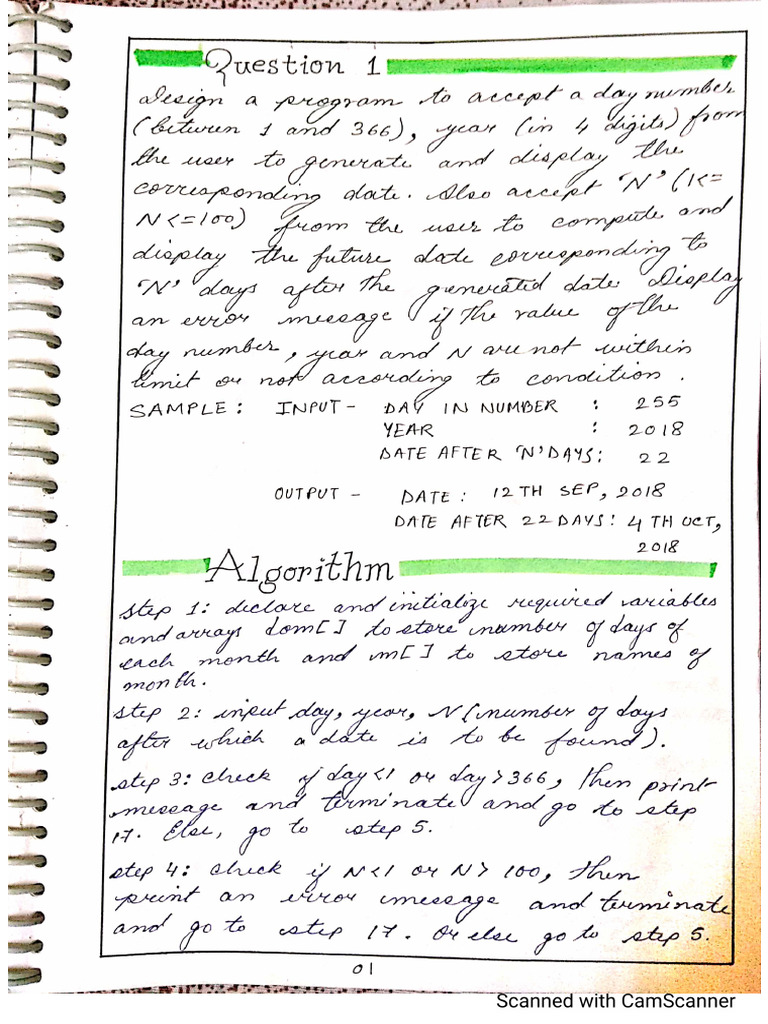 Question 1
Design a program to accept a day number
(between 1 and 366), year (in 4 digits) from
the user to generate and display the
corresponding date. Also accept 'N' (1<=
N<=100) from the user to compute and
display the future date corresponding to
'N' days after the generated date. Display
an error message if the value of the
day number, year and N are not within
limit or not according to condition.
SAMPLE: INPUT - DAY IN NUMBER : 255
YEAR : 2018
DATE AFTER 'N' DAYS: 22
OUTPUT - DATE: 12TH SEP, 2018
DATE AFTER 22 DAYS: 4TH OCT,
2018
Algorithm
Step 1: declare and initialize required variables
and arrays dom[] to store number of days of
each month and m[] to store names of
month.
Step 2: input day, year, N (number of days
after which a date is to be found).
Step 3: check if day<1 or day>366, then print
message and terminate and go to step
17. Else, go to step 5.
Step 4: check if N<1 or N>100, then
print an error message and terminate
and go to step 17. Or else go to step 5.
01
Scanned with CamScanner